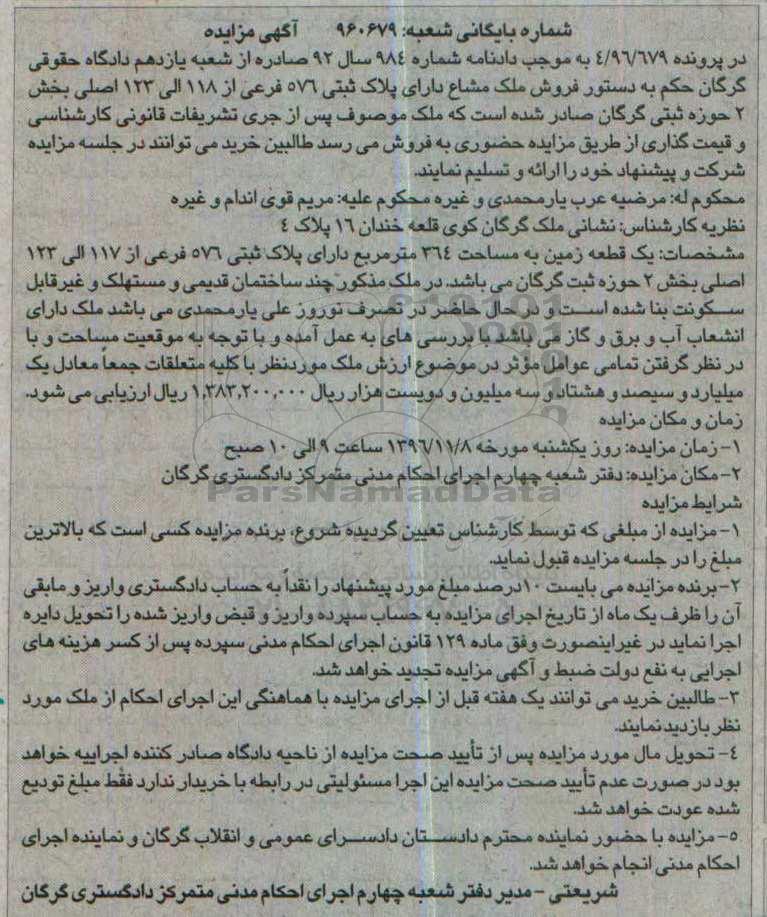 شماره بایگانی شعبه: ۹۶۰۶۷۹ آگهی مزایده
در پرونده ۴/۹۶/۶۷۹ به موجب دادنامه شماره ۹۸۴ سال ۹۲ صادره از شعبه یازدهم دادگاه حقوقی
گرگان حکم به دستور فروش ملک مشاع دارای پلاک ثبتی ۵۷۶ فرعی از ۱۱۸ الی ۱۲۳ اصلی بخش
۲ حوزه ثبتی گرگان صادر شده است که ملک موصوف پس از جری تشریفات قانونی کارشناسی
و قیمت گذاری از طریق مزایده حضوری به فروش می رسد طالبین خرید می توانند در جلسه مزایده
شرکت و پیشنهاد خود را ارائه و تسلیم نمایند.
محکوم له: مرضیه عرب یارمحمدی و غیره محکوم علیه: مریم قوی اندام و غیره
نظریه کارشناس: نشانی ملک گرگان کوی قلعه خندان ۱۶ پلاک ۴
مشخصات: یک قطعه زمین به مساحت ۳۶۴ مترمربع دارای پلاک ثبتی ۵۷۶ فرعی از ۱۱۷ الی ۱۲۳
اصلی بخش ۲ حوزه ثبت گرگان می باشد. در ملک مذکور چند ساختمان قدیمی و مستهلک و غیرقابل
سکونت بنا شده است و در حال حاضر در تصرف نوروز علی یارمحمدی می باشد ملک دارای
انشعاب آب و برق و گاز می باشد با بررسی های به عمل آمده و با توجه به موقعیت مساحت و با
در نظر گرفتن تمامی عوامل مؤثر در موضوع ارزش ملک موردنظر با کلیه متعلقات جمعاً معادل یک
میلیارد و سیصد و هشتاد و سه میلیون و دویست هزار ریال ۱,۳۸۳,۲۰۰,۰۰۰ ریال ارزیابی می شود.
زمان و مکان مزایده
۱- زمان مزایده: روز یکشنبه مورخه ۱۳۹۶/۱۱/۸ ساعت ۹ الی ۱۰ صبح
۲- مکان مزایده: دفتر شعبه چهارم اجرای احکام مدنی متمرکز دادگستری گرگان
ParsNamadData
شرایط مزایده
۱- مزایده از مبلغی که توسط کارشناس تعیین گردیده شروع، برنده مزایده کسی است که بالاترین
مبلغ را در جلسه مزایده قبول نماید.
۲- برنده مزایده می بایست ۱۰درصد مبلغ مورد پیشنهاد را نقداً به حساب دادگستری واریز و مابقی
آن را ظرف یک ماه از تاریخ اجرای مزایده به حساب سپرده واریز و قبض واریز شده را تحویل دایره
اجرا نماید در غیراینصورت وفق ماده ۱۲۹ قانون اجرای احکام مدنی سپرده پس از کسر هزینه های
اجرایی به نفع دولت ضبط و آگهی مزایده تجدید خواهد شد.
۳- طالبین خرید می توانند یک هفته قبل از اجرای مزایده با هماهنگی این اجرای احکام از ملک مورد
نظر بازدید نمایند.
۴- تحویل مال مورد مزایده پس از تأیید صحت مزایده از ناحیه دادگاه صادر کننده اجراییه خواهد
بود در صورت عدم تأیید صحت مزایده این اجرا مسئولیتی در رابطه با خریدار ندارد فقط مبلغ تودیع
شده عودت خواهد شد.
۵- مزایده با حضور نماینده محترم دادستان دادسرای عمومی و انقلاب گرگان و نماینده اجرای
احکام مدنی انجام خواهد شد.
شریعتی - مدیر دفتر شعبه چهارم اجرای احکام مدنی متمرکز دادگستری گرگان